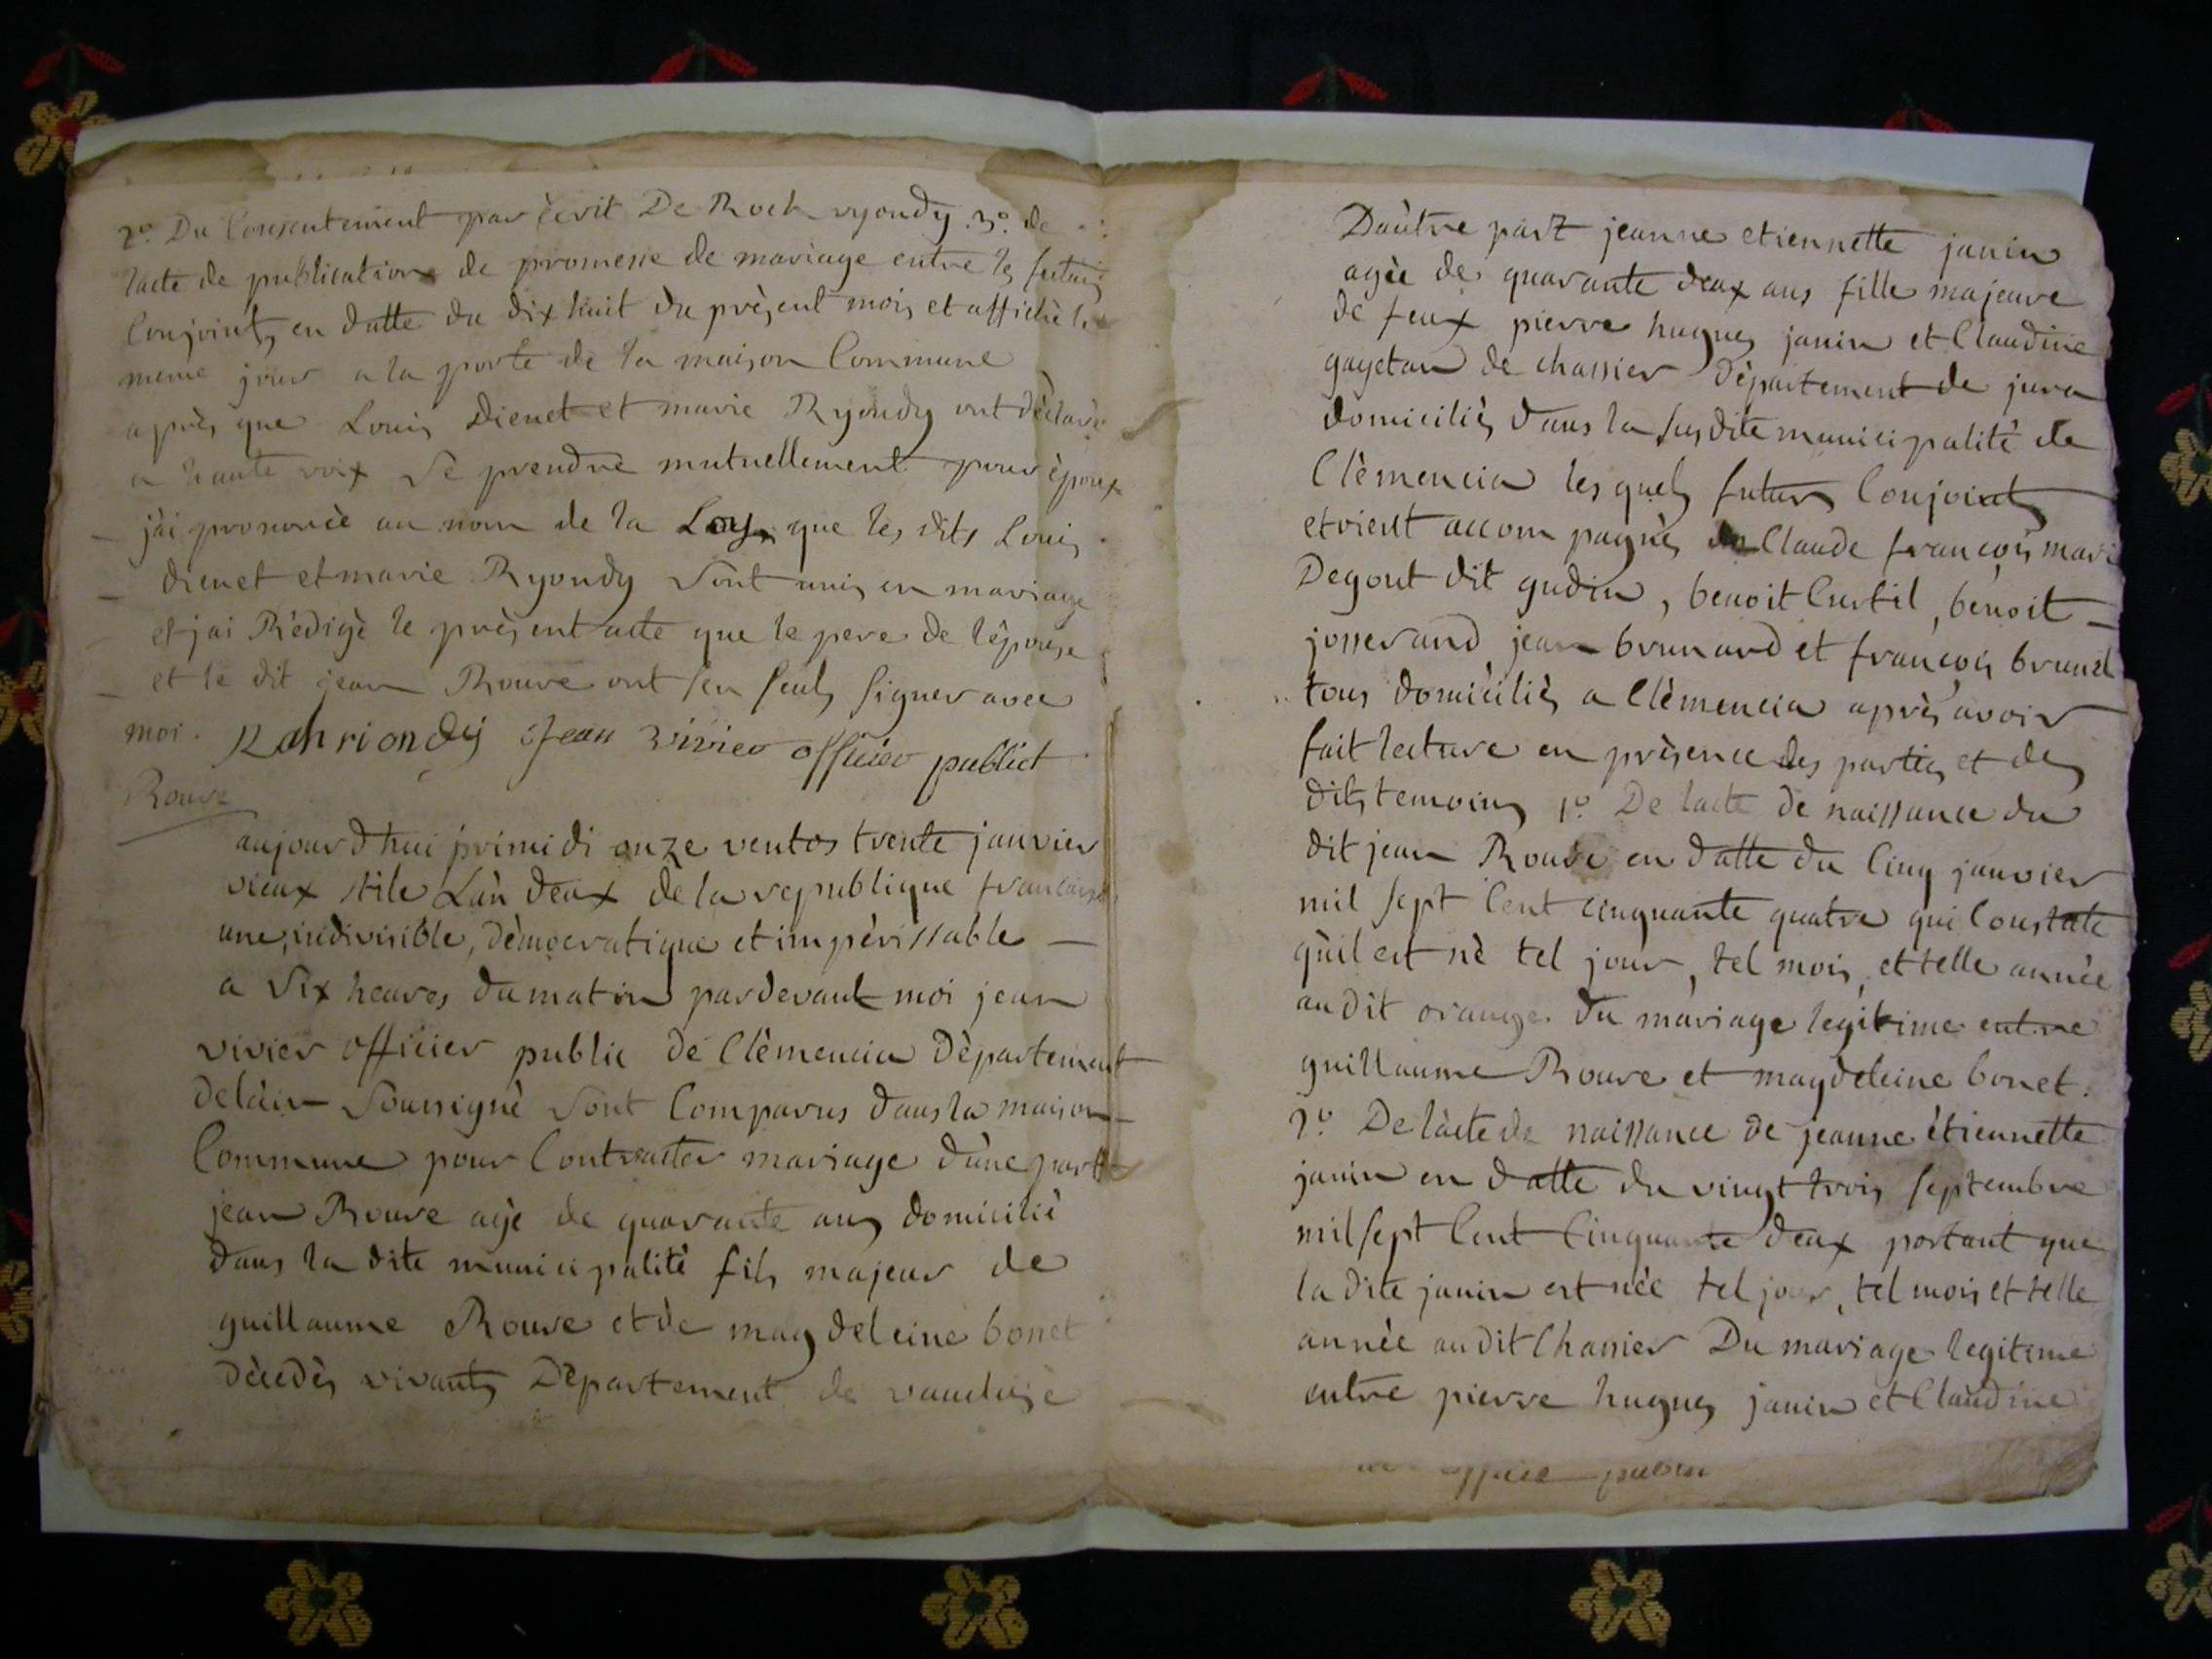 2.º Du Consentement par écrit De Roch ryondy .3.º de
lacte de publications de promesse de mariage entre les futurs
Conjoints en datte du dix huit du présent mois et affichè le
meme jour a la porte de la maison Commune
aprês que Louis Dienet et marie Ryondy ont dèclarè
a haute voix Se prendre mutuellement pour époux
j'ai prononcè au nom de la Loy, que les dits Louis
dienet et marie Ryondy Sont unis en mariage
et jai Rèdigè le prèsent acte que le pere de lépouse
et le dit jean Rouve ont seu seuls signer avec
moi. Rohriondy Jean vivier officier publict
Rouve
aujourdhui primidi onze ventos trente janvier
vieux stile Làn deux dela republique francaise
une, indivisible, dèmocratique et impèrissable —
a Six heures du matin pardevant moi jean
vivier officier public de Clèmencia Dèpartement
delàin Soussignè Sont Comparus dans la maison
Commune pour Contracter mariage dùne part
jean Rouve agè de quarante ans domiciliè
dans la dite municipalitè fils majeur de
guillaume Rouve et de magdeleine bonet
dècèdès vivants Dèpartement de vaucluse
Daùtre part jeanne etiennette janin
agèe de quarante deux ans fille majeure
de feux pierre hugues janin et Claudine
gayetan de chassier Dèpartement de jura
domiciliès dans la susdite municipalitè de
Clèmencia les quels futurs Conjoints
etoient accompagnès de Claude francois mari
Degout dit gudin, benoit Curtil, benoit —
josserand jean brunard et francois brunel
tous domiciliès a Clèmencia aprês avoir
fait lecture en prèsence des parties et des
dits temoins 1.º De lacte de naissance du
dit jean Rouve en datte du Cinq janvier
mil sept Cent cinquante quatre qui Constate
qùil est nè tel jour, tel mois, et telle annèe
au dit orange. du mariage legitime entre
guillaume Rouve et magdeleine bonet.
2.º De làcte de naissance de jeanne ètiennette
janin en datte du vingt trois septembre
mil sept Cent Cinquante deux portant que
la dite janin est nèe tel jour, tel mois et telle
annèe au dit Chassier Du mariage legitime
entre pierre hugues janin et Claudine